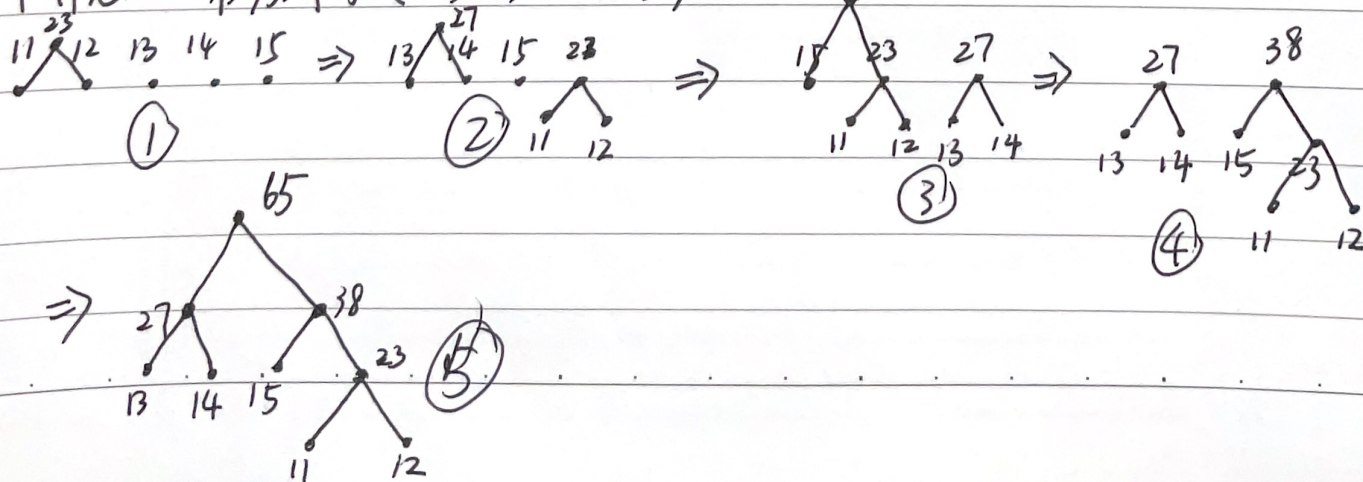 23 27
11 12 13 14 15 ⇒ 13 14 15 23 ⇒ 15 23 27 ⇒ 27 38
① ② 11 12 11 12 13 14 13 14 15 23
③ ④ 11 12
65
⇒ 27 38 ⑤
23
13 14 15
11 12